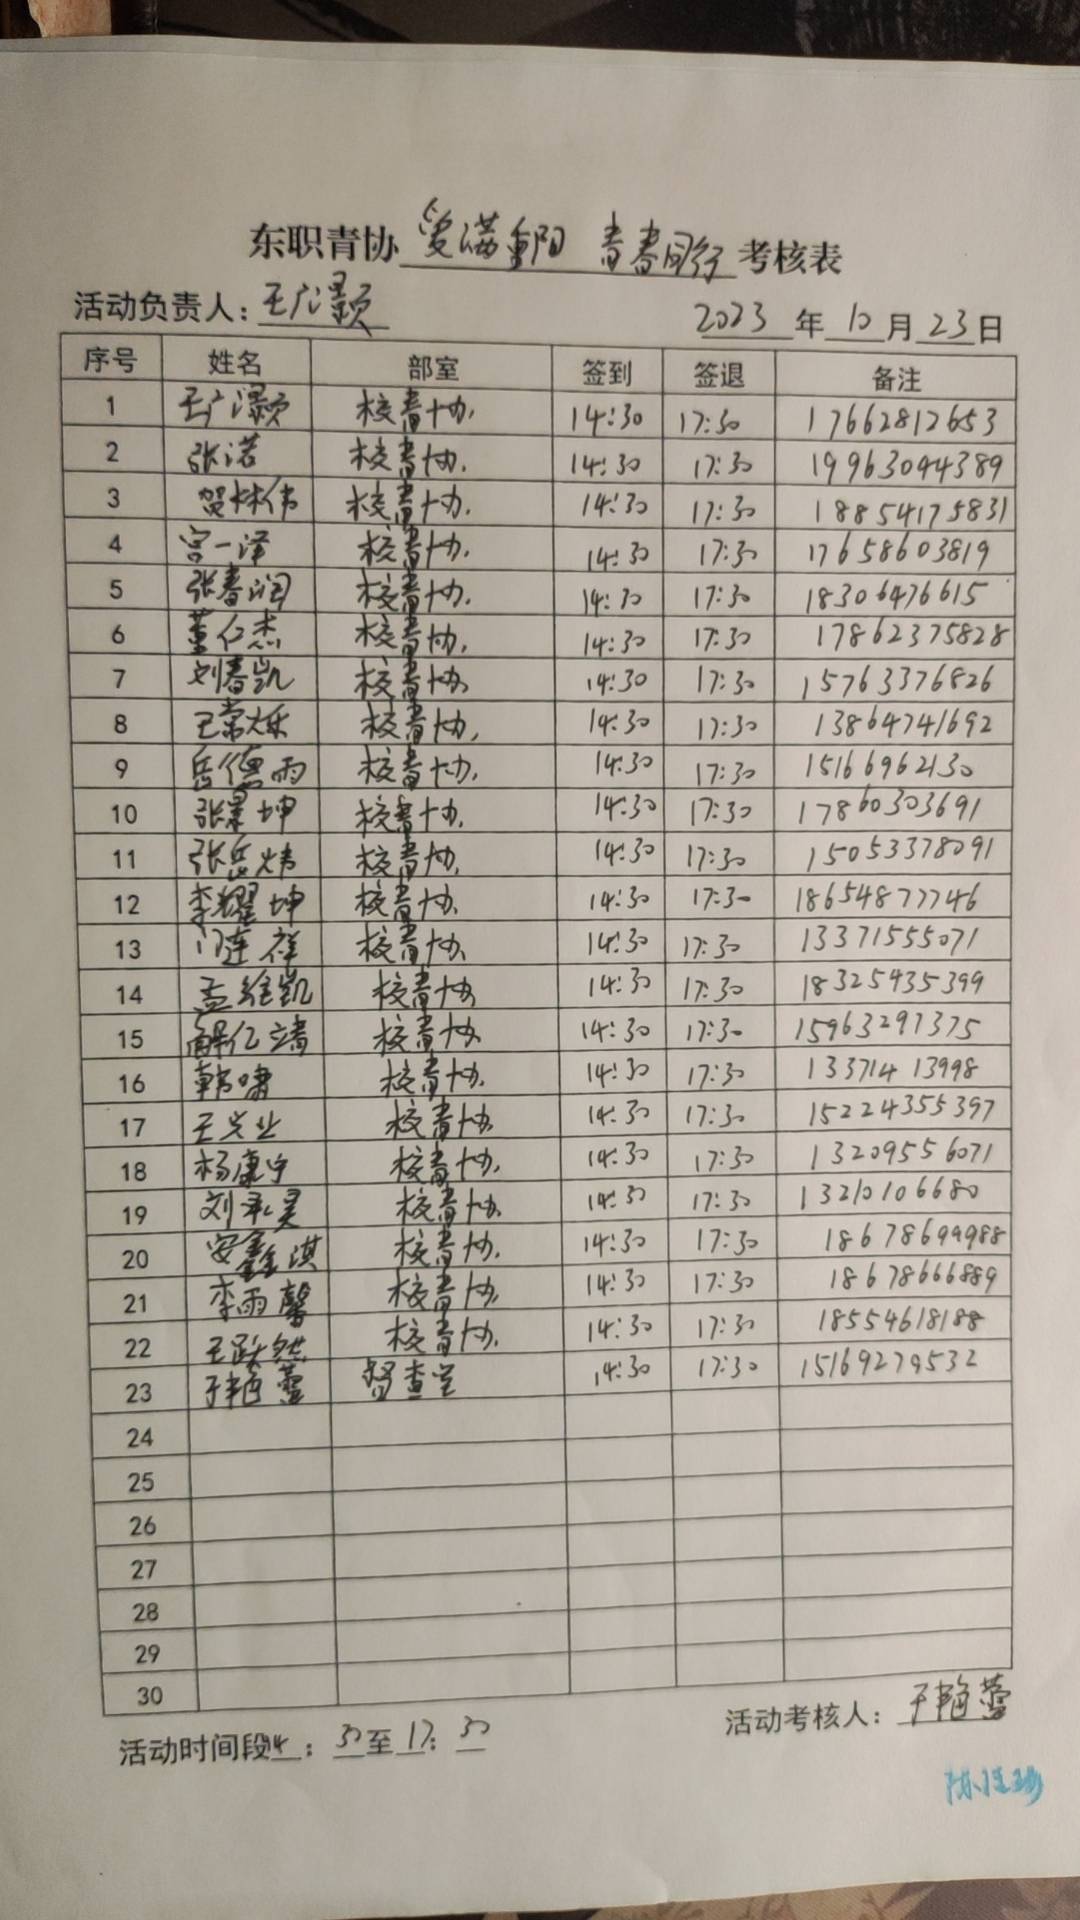 东职青协 爱满重阳 青春同行 考核表
活动负责人：王广灏颖 2023 年 10 月 23 日
序号 姓名 部室 签到 签退 备注
1 王广灏颖 校青协. 14:30 17:30 17662812653
2 张诺 校青协. 14:30 17:30 19963044389
3 贺林伟 校青协. 14:30 17:30 18854175831
4 宫一泽 校青协. 14:30 17:30 17658603819
5 张春润 校青协. 14:30 17:30 18306476615
6 董仁杰 校青协. 14:30 17:30 17862375828
7 刘春凯 校青协. 14:30 17:30 15763376826
8 王常烁 校青协. 14:30 17:30 13864741692
9 岳德雨 校青协. 14:30 17:30 15166962130
10 张景坤 校青协. 14:30 17:30 17860303691
11 张岳炜 校青协. 14:30 17:30 15053378091
12 李耀坤 校青协. 14:30 17:30 18654877746
13 门连祥 校青协. 14:30 17:30 13371555071
14 孟维凯 校青协 14:30 17:30 18325435399
15 解亿靖 校青协. 14:30 17:30 15963297375
16 韩啸 校青协. 14:30 17:30 13371413998
17 王兴业 校青协. 14:30 17:30 15224355397
18 杨康宁 校青协. 14:30 17:30 13209556071
19 刘承昊 校青协. 14:30 17:30 13210106680
20 安鑫淇 校青协. 14:30 17:30 18678699988
21 李雨馨 校青协. 14:30 17:30 18678666889
22 王跃然 校青协. 14:30 17:30 18554618188
23 于艳蕾 督查室 14:30 17:30 15169279532
24
25
26
27
28
29
30
活动时间段14：30至17：30 活动考核人：于艳蕾